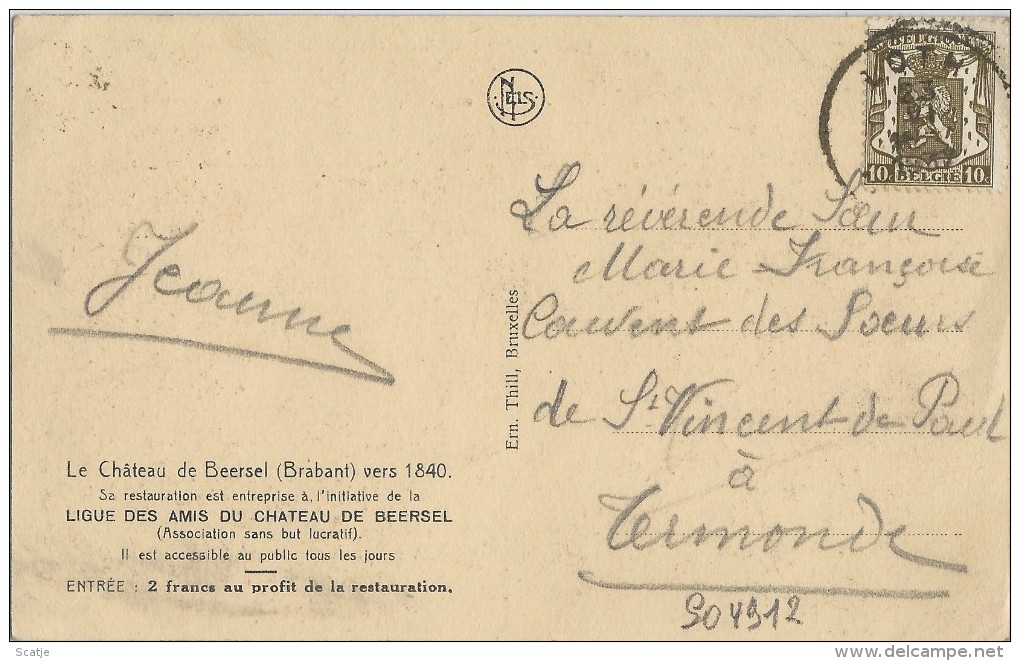 NELS
LOTH
10c BELGIE 10c
Jeanne
La révérende Sœur
Marie-Françoise
Couvent des Soeurs
de St. Vincent de Paul
à
Termonde
904912
Ern. Thill, Bruxelles
Le Château de Beersel (Brabant) vers 1840.
Sa restauration est entreprise à l'initiative de la
LIGUE DES AMIS DU CHATEAU DE BEERSEL
(Association sans but lucratif).
Il est accessible au public tous les jours
ENTRÉE : 2 francs au profit de la restauration.
Scatje
delcampe.net